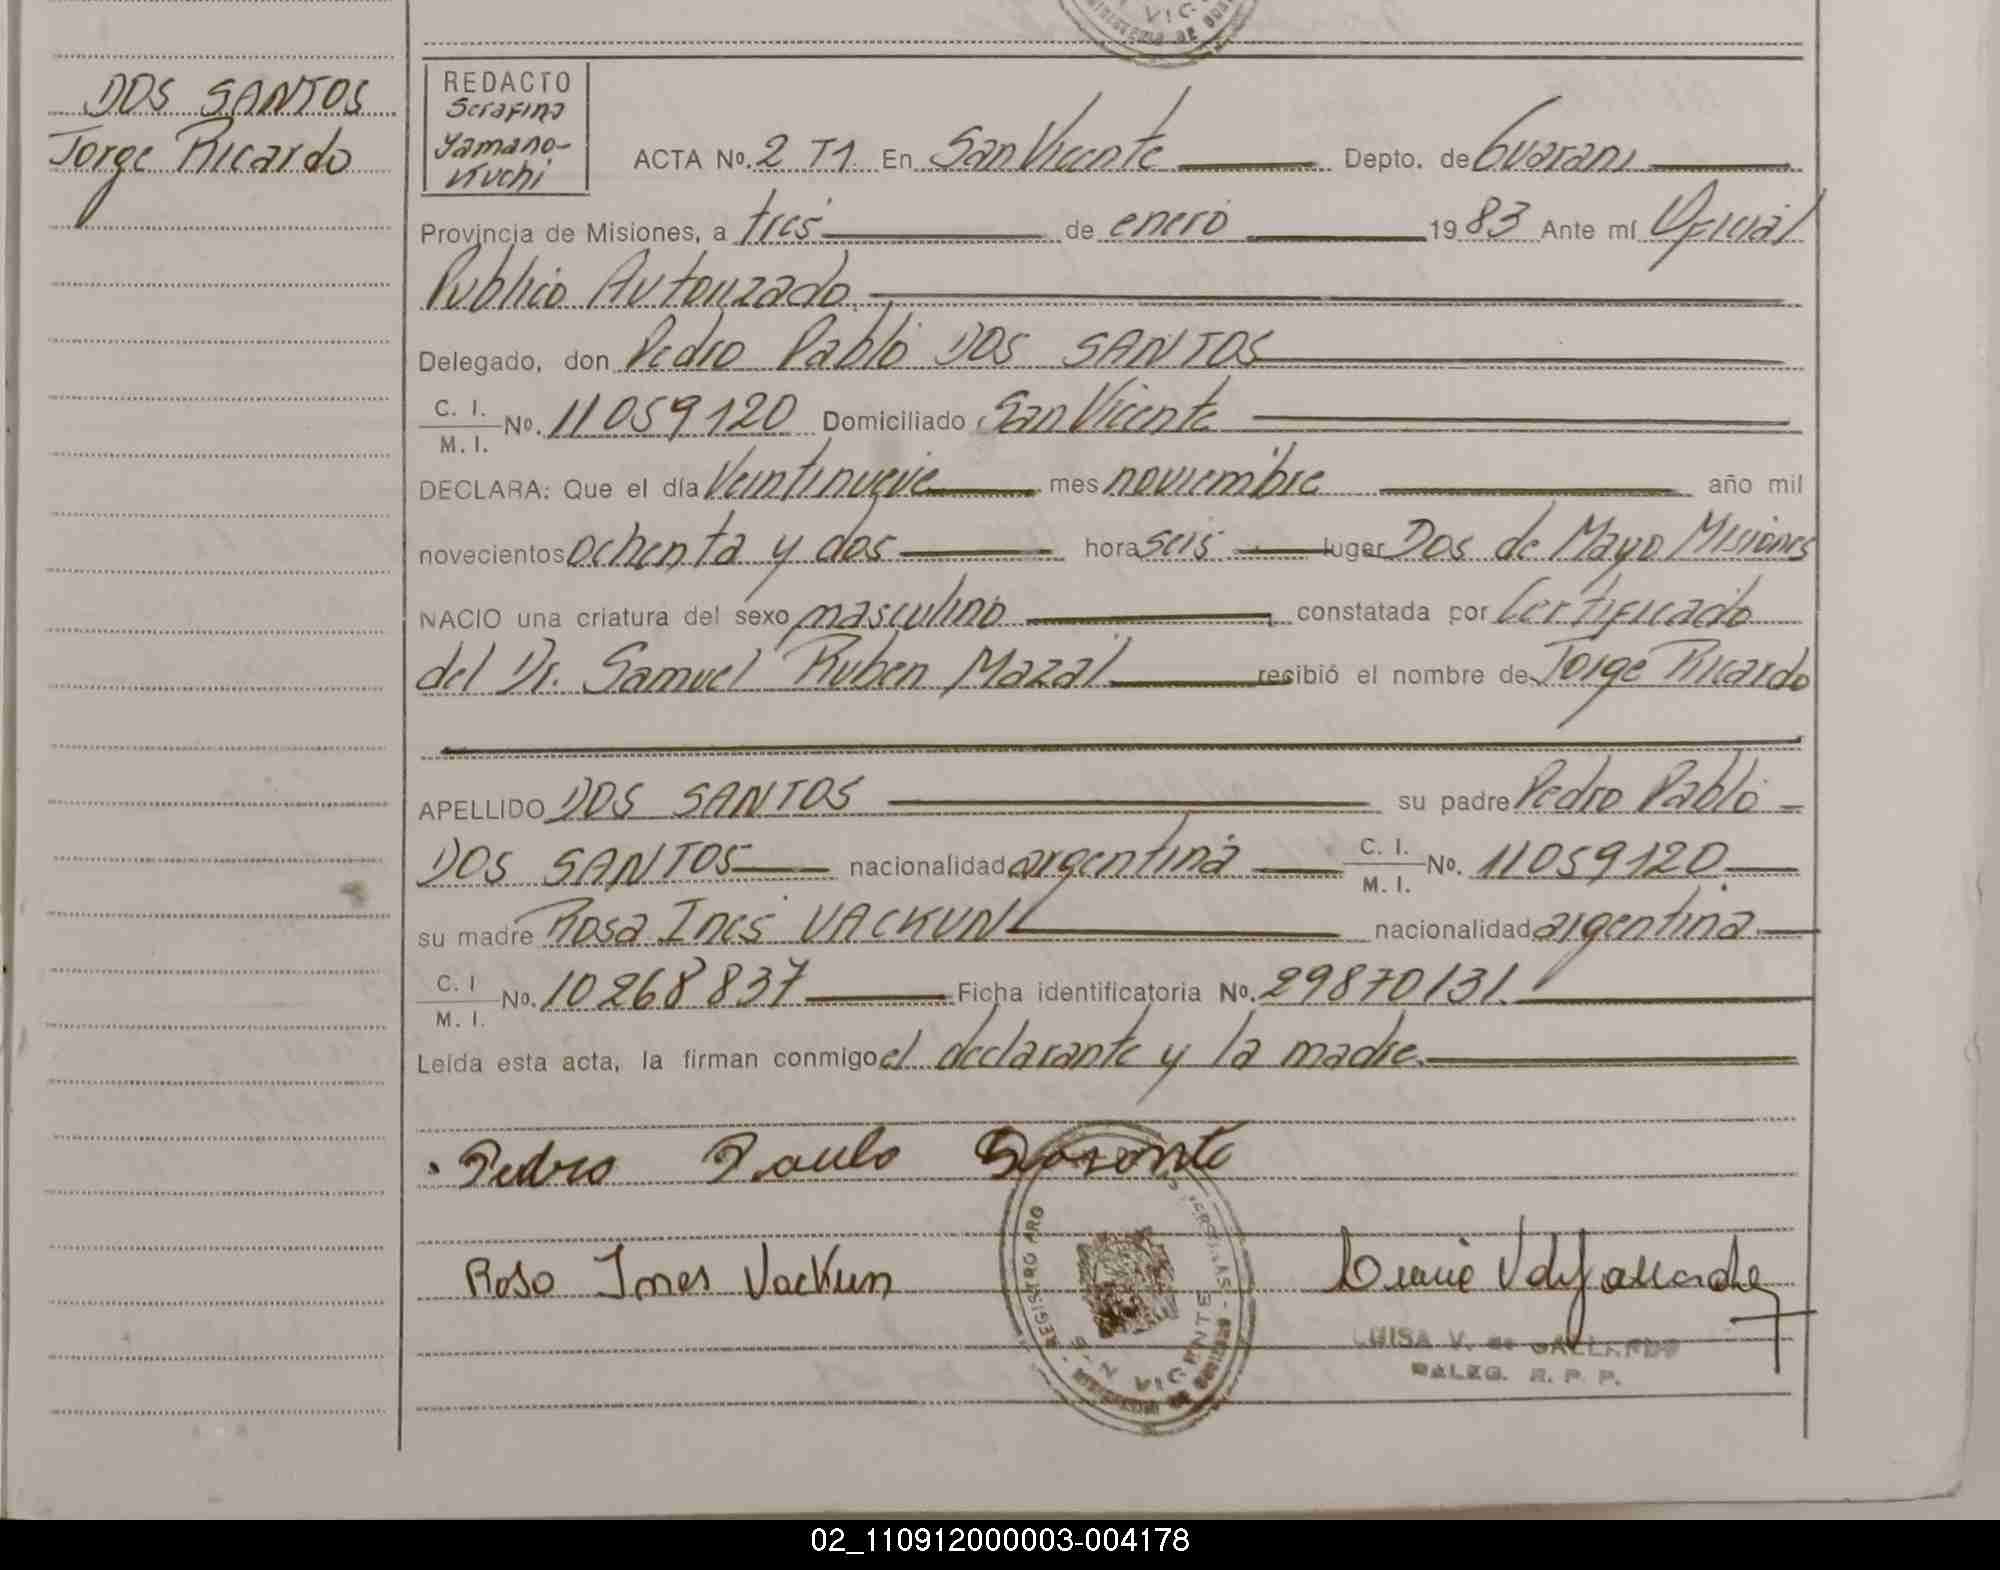 DOS SANTOS
Jorge Ricardo
REDACTO
Serafina
Yamano-
Kuchi
ACTA No. 2 T1 En San Vicente Depto. de Guarani
Provincia de Misiones, a tres de enero 1983 Ante mí Oficial
Publico Autorizado
Delegado, don Pedro Pablo DOS SANTOS
C. I.
M. I. No. 11059120 Domiciliado San Vicente
DECLARA: Que el día Veintinueve mes noviembre año mil
novecientos ochenta y dos hora seis lugar Dos de Mayo Misiones
NACIO una criatura del sexo masculino constatada por Certificado
del Dr. Samuel Ruben Mazal recibió el nombre de Jorge Ricardo
APELLIDO DOS SANTOS su padre Pedro Pablo
DOS SANTOS nacionalidad argentina C. I. M. I. No. 11059120
su madre Rosa Inés VACKUN nacionalidad argentina
C. I M. I. No. 10268837 Ficha identificatoria No. 29870131
Leída esta acta, la firman conmigo el declarante y la madre.
Pedro Paulo
Rosa Ines Vackun
REGISTRO ARG
VICENTE
LUISA V. de GALLARDO
DALEG. R. P. P.
02_110912000003-004178